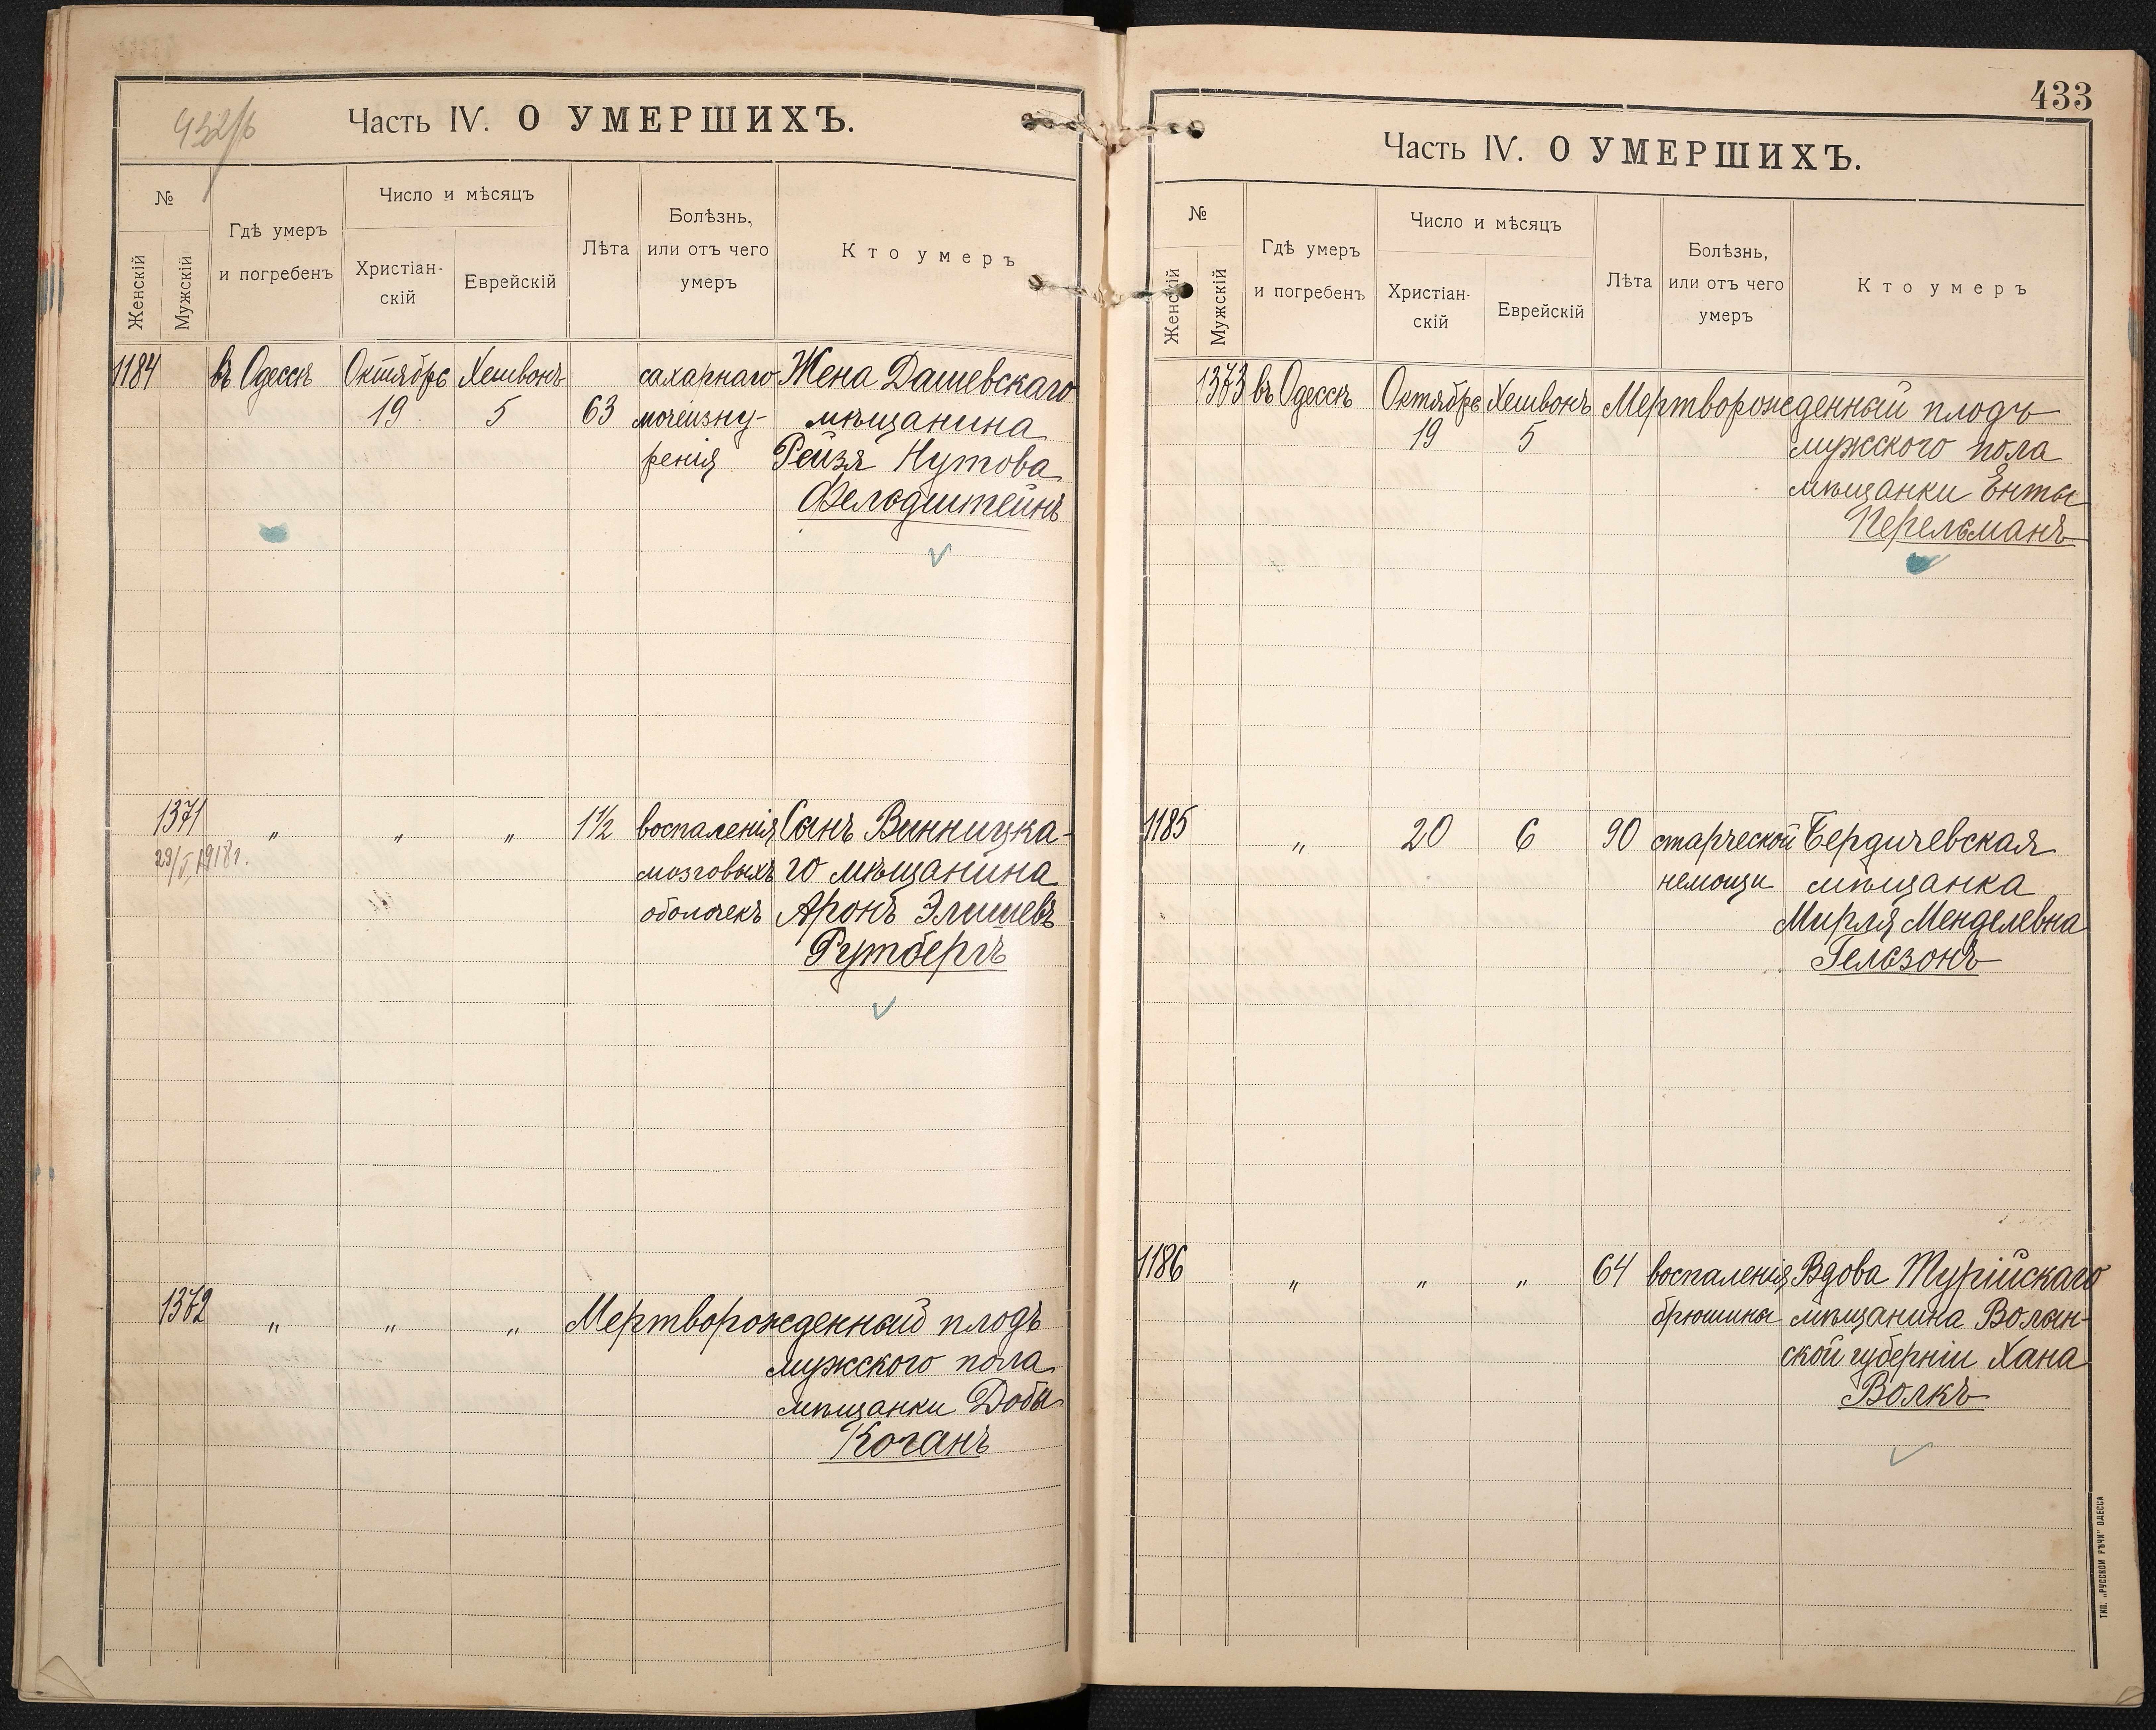 432/б
Часть IV. О УМЕРШИХЪ.
№
Женскій
Мужскій
Гдѣ умеръ
и погребенъ
Число и мѣсяцъ
Христіан-
скій
Еврейскій
Лѣта
Болѣзнь,
или отъ чего
умеръ
Кто умеръ
1184 въ Одессѣ Октябрь Хешвонъ сахарнаго Жена Дашевскаго
19 5 63 мочеизну- мѣщанина
ренія Рейзя Нутова
Фельдштейнъ
1371 " " " 1½ воспаленія Сынъ Винницка-
29/V 1918г. мозговыхъ го мѣщанина
оболочекъ Аронъ Элишевъ
Рутбергъ
1372 " " " Мертворожденный плодъ
мужского пола
мѣщанки Добы
Коганъ
433
Часть IV. О УМЕРШИХЪ.
№
Женскій
Мужскій
Гдѣ умеръ
и погребенъ
Число и мѣсяцъ
Христіан-
скій
Еврейскій
Лѣта
Болѣзнь,
или отъ чего
умеръ
Кто умеръ
1373 въ Одессѣ Октябрь Хешвонъ Мертворожденный плодъ
19 5 мужского пола
мѣщанки Енты
Перельманъ
1185 " 20 6 90 старческой Бердичевская
немощи мѣщанка
Мирля Менделевна
Гельзонъ
1186 " " " 64 воспаленія Вдова Турійскаго
брюшины мѣщанина Волын-
ской губерніи Хана
Волкъ
ТИП. „РУССКОЙ РѢЧИ" ОДЕССА